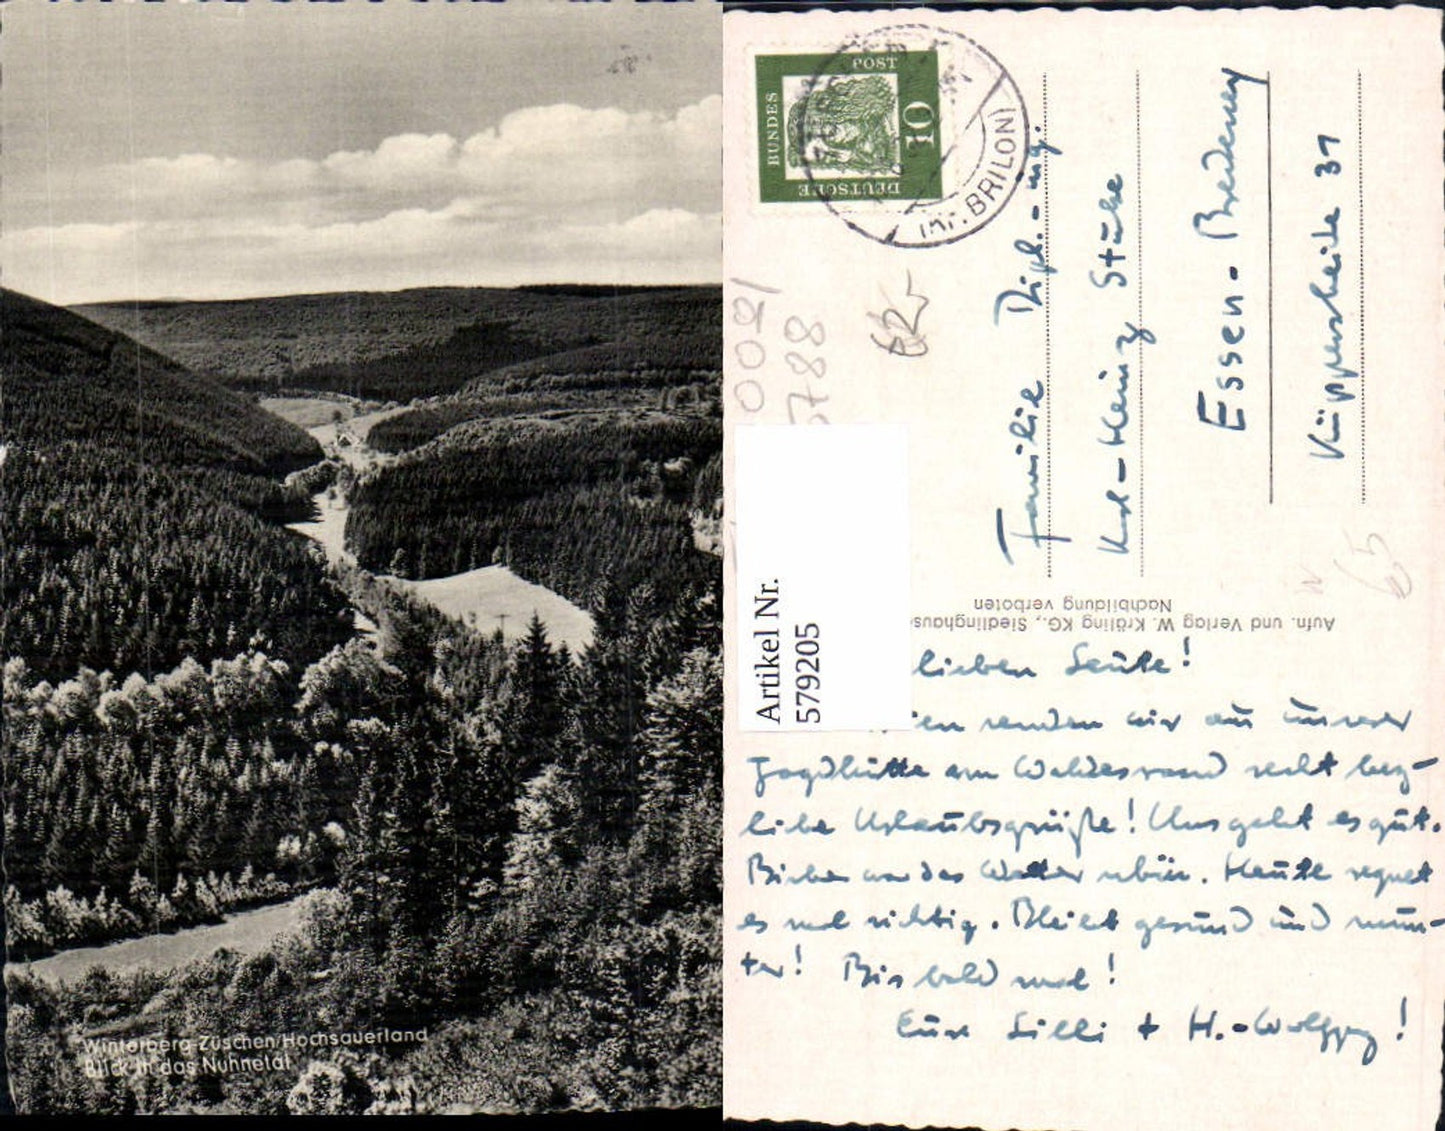 Winterberg-Züschen/Hochsauerland
Blick in das Nuhnetal
DEUTSCHE
BUNDES
POST
10
(KR. BRILON)
002/
5788
Artikel Nr.
579205
Familie Dipl.-Ing.
Karl-Heinz Stube
Essen-Bredeney
Küppersheide 31
65
Aufn. und Verlag W. Kräling KG., Siedlinghause
Nachbildung verboten
lieben Leute!
senden wir aus unserer
Jagdhütte am Waldesrand recht herz-
liche Urlaubsgrüße! Uns geht es gut.
Bisher war das Wetter schön. Heute regnet
es mal richtig. Bleibt gesund und mun-
ter! Bis bald mal!
Eure Lilli + H.-Wolfgang!